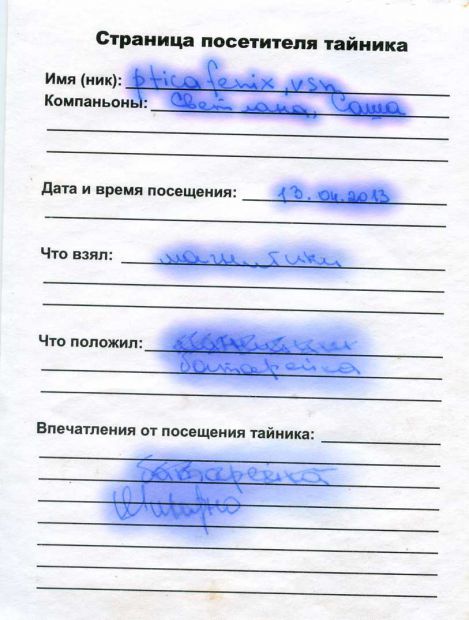 Страница посетителя тайника
Имя (ник): pticafenix, vsn
Компаньоны: Светлана, Саша
Дата и время посещения: 13.04.2013
Что взял: магнитики
Что положил:
батарейка
Впечатления от посещения тайника:
батарейка